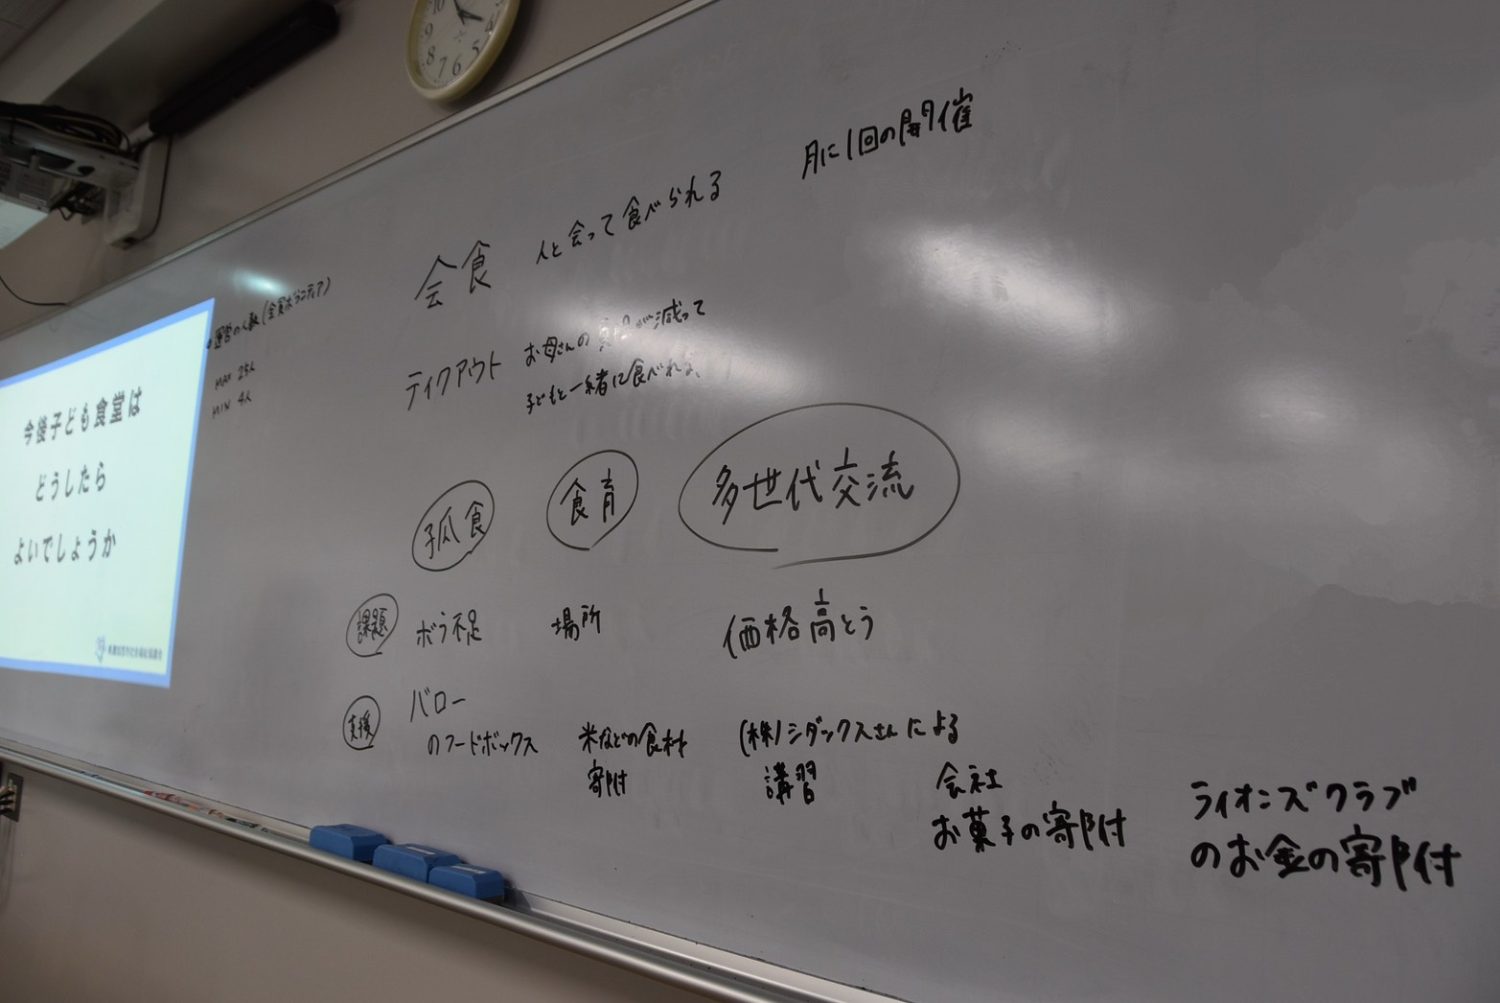 今後子ども食堂は
どうしたら
よいでしょうか
・運営の人数(全員ボランティア)
MAX 25人
MIN 4人
会食 人と会って食べられる
月に1回の開催
テイクアウト お母さんの負担が減って
子どもと一緒に食べれる、
孤食 食育 多世代交流
課題 ボラ不足 場所 価格高とう
支援 バロー
のフードボックス
米などの食材
寄附
(株)シダックスさんによる
講習
会社
お菓子の寄附
ライオンズクラブ
のお金の寄附
10 9 8 7 6 5 4